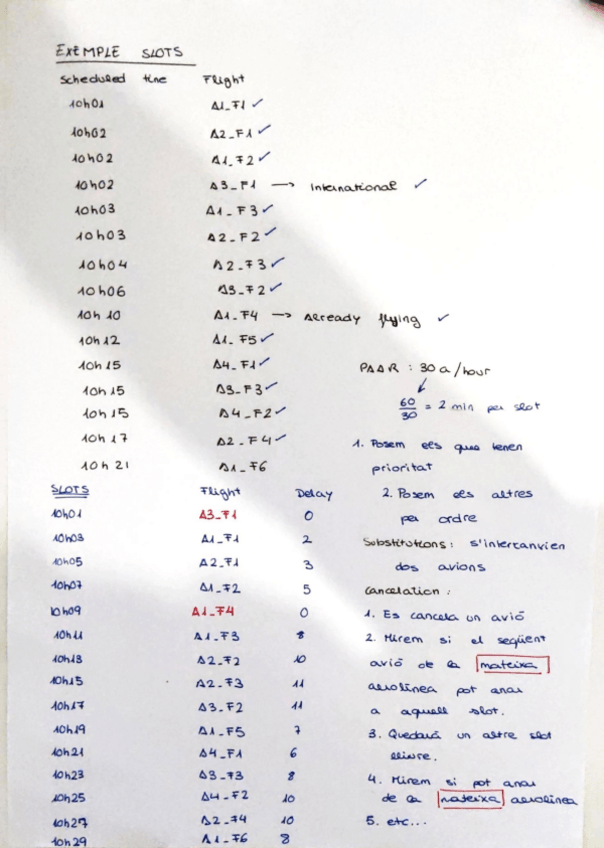 EXEMPLE SLOTS
Scheduled time Flight
10h01 A1_F1 ✓
10h02 A2_F1 ✓
10h02 A1_F2 ✓
10h02 A3_F1 → International ✓
10h03 A1_F3 ✓
10h03 A2_F2 ✓
10h04 A2_F3 ✓
10h06 A3_F2 ✓
10h10 A1_F4 → Already flying ✓
10h12 A1_F5 ✓
10h15 A4_F1 ✓
10h15 A3_F3 ✓
10h15 A4_F2 ✓
10h17 A2_F4 ✓
10h21 A1_F6
PAAR : 30 a/hour
60/30 = 2 min per slot
1. Posem els que tenen
prioritat
2. Posem els altres
per ordre
Substitutions: s'intercanvien
dos avions
Cancelation :
1. Es cancela un avió
2. Mirem si el següent
avió de la mateixa
aerolínea pot anar
a aquell slot.
3. Quedarà un altre slot
lliure.
4. Mirem si pot anar
de la mateixa aerolínea
5. etc...
SLOTS Flight Delay
10h01 A3_F1 0
10h03 A1_F1 2
10h05 A2_F1 3
10h07 A1_F2 5
10h09 A1_F4 0
10h11 A1_F3 8
10h13 A2_F2 10
10h15 A2_F3 11
10h17 A3_F2 11
10h19 A1_F5 7
10h21 A4_F1 6
10h23 A3_F3 8
10h25 A4_F2 10
10h27 A2_F4 10
10h29 A1_F6 8